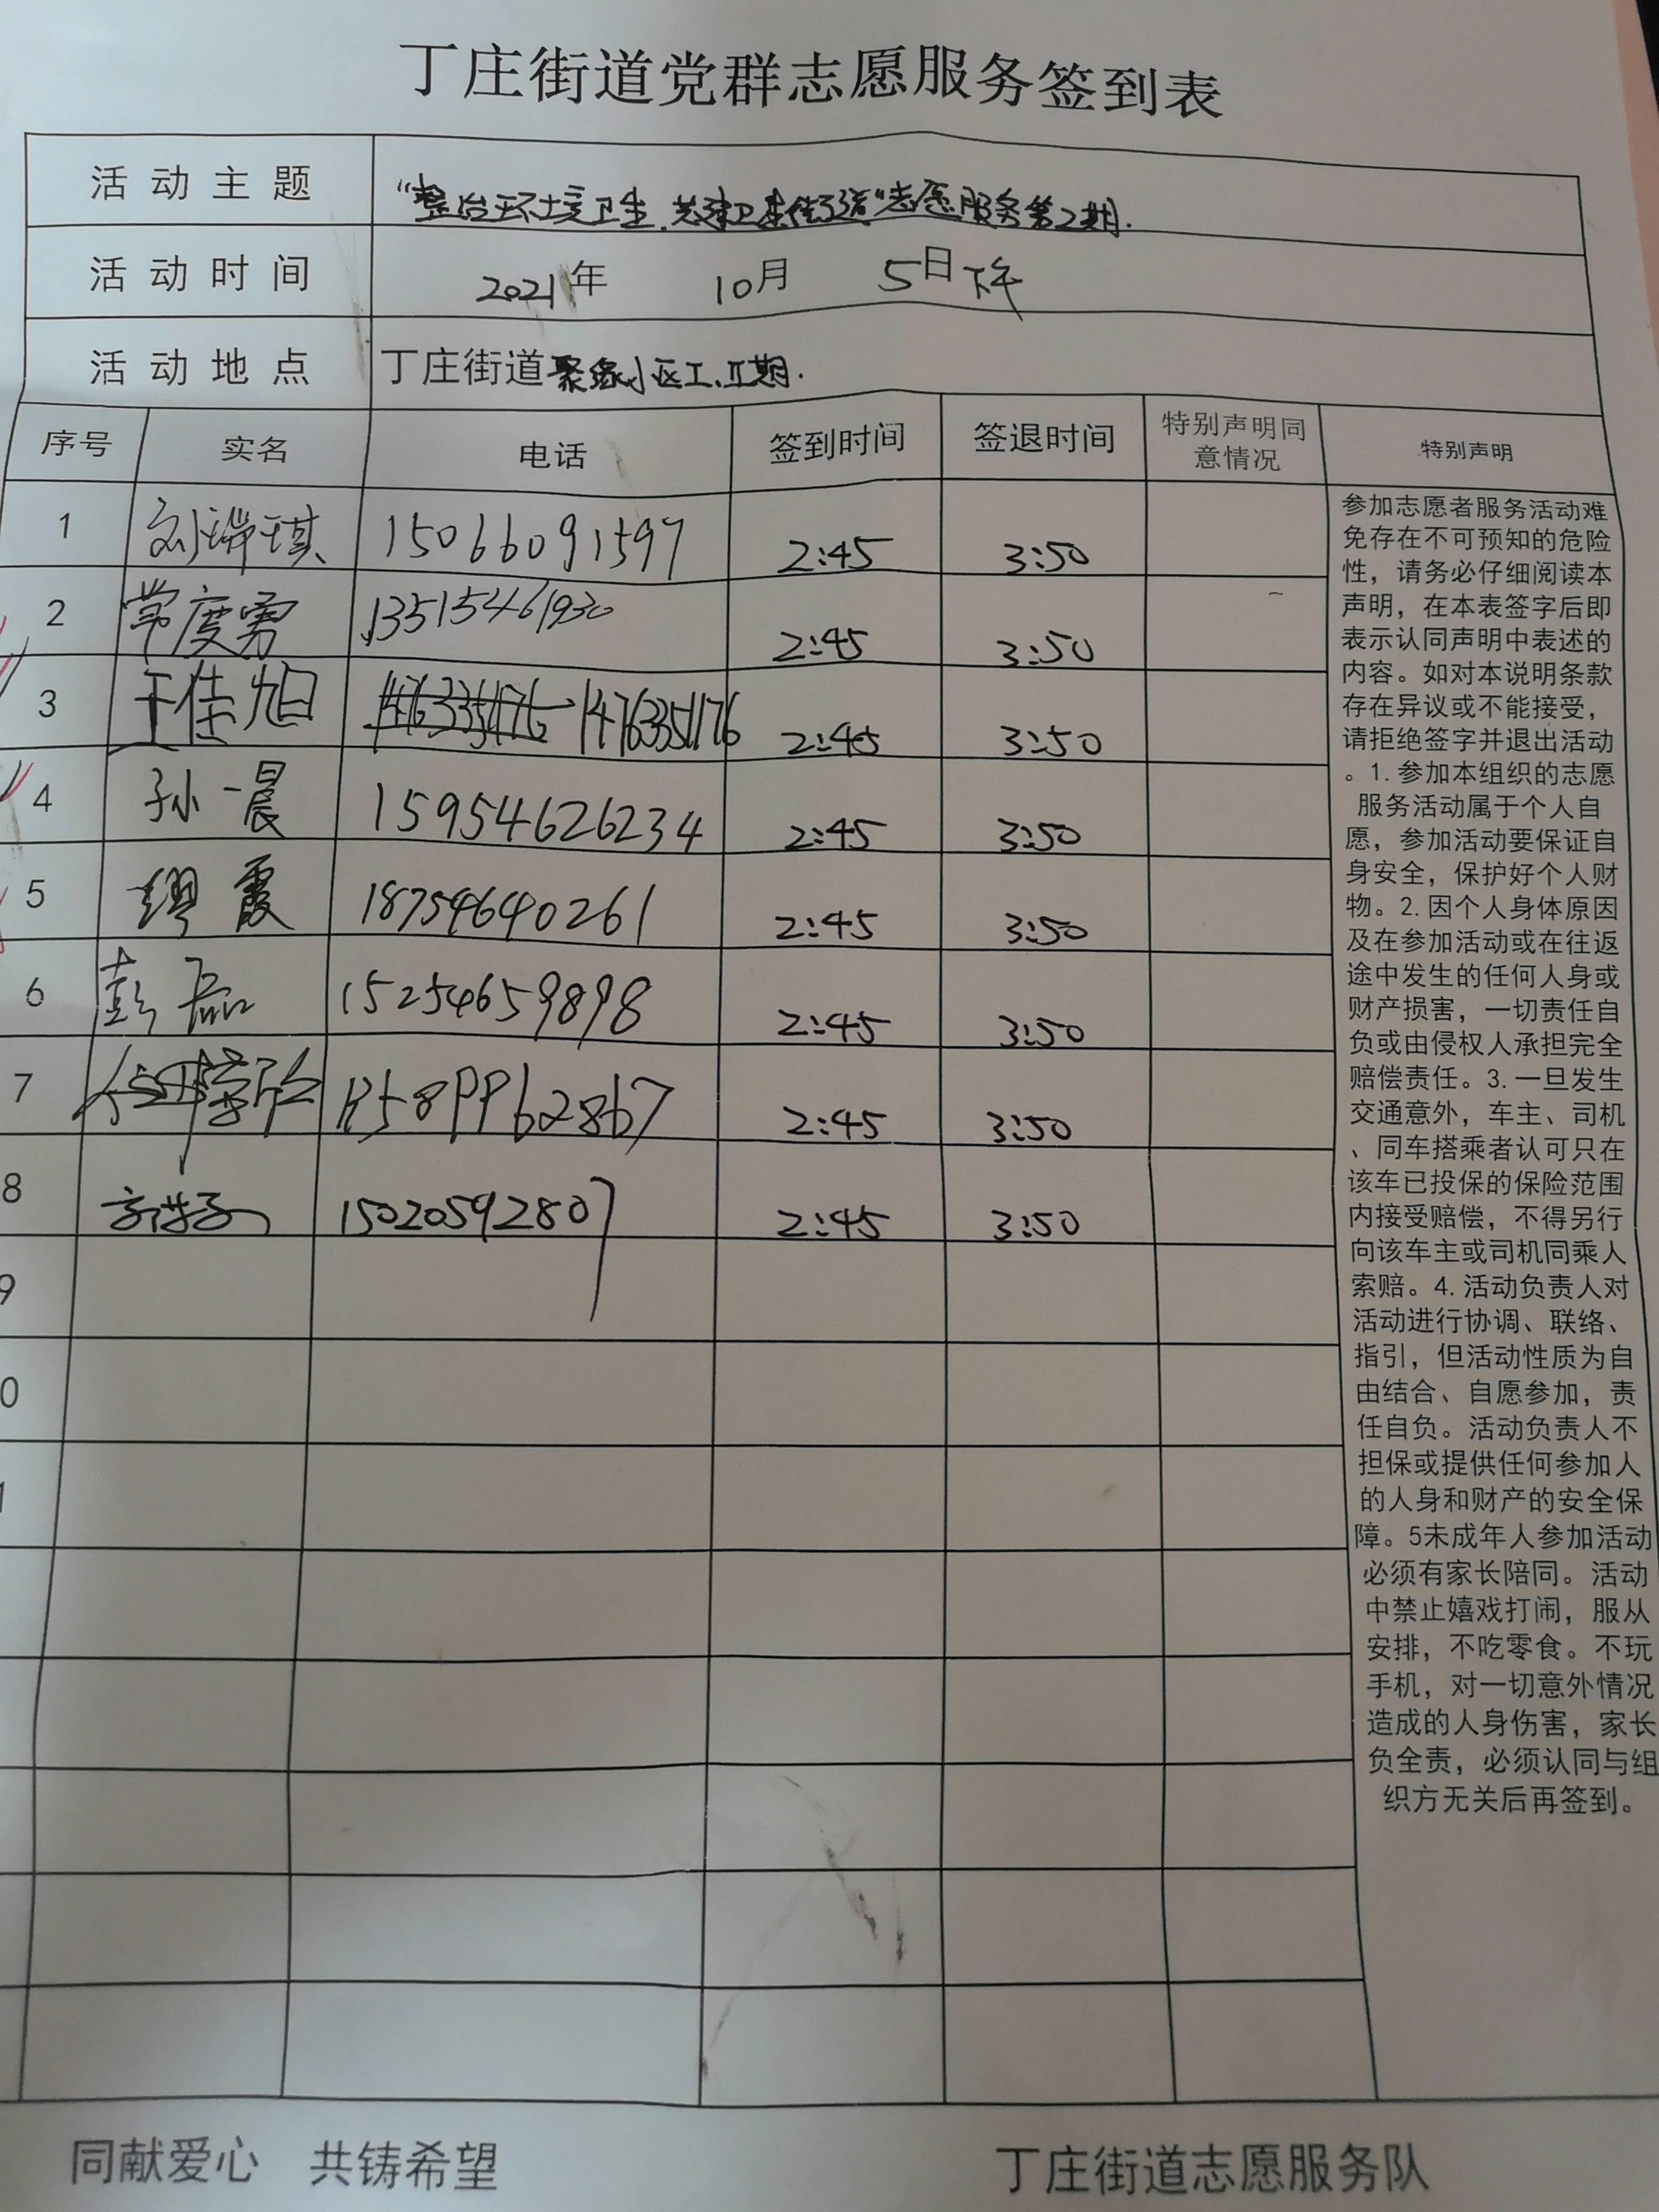 丁庄街道党群志愿服务签到表
活动主题 “整治环境卫生、共建卫生街道”志愿服务第2期.
活动时间 2021年 10月 5日下午
活动地点 丁庄街道聚缘小区Ⅰ、Ⅱ期.
序号 实名 电话 签到时间 签退时间 特别声明同意情况 特别声明
1 刘瑞琪 15066091597 2:45 3:50
2 常度勇 13515461930 2:45 3:50
3 王佳旭 14763351176 2:45 3:50
4 孙一晨 15954626234 2:45 3:50
5 缪霞 18754640261 2:45 3:50
6 彭磊 15254659898 2:45 3:50
7 2:45 3:50
8 15020592807 2:45 3:50
9
0
1
参加志愿者服务活动难
免存在不可预知的危险
性，请务必仔细阅读本
声明，在本表签字后即
表示认同声明中表述的
内容。如对本说明条款
存在异议或不能接受，
请拒绝签字并退出活动
。1.参加本组织的志愿
服务活动属于个人自
愿，参加活动要保证自
身安全，保护好个人财
物。2.因个人身体原因
及在参加活动或在往返
途中发生的任何人身或
财产损害，一切责任自
负或由侵权人承担完全
赔偿责任。3.一旦发生
交通意外，车主、司机
、同车搭乘者认可只在
该车已投保的保险范围
内接受赔偿，不得另行
向该车主或司机同乘人
索赔。4.活动负责人对
活动进行协调、联络、
指引，但活动性质为自
由结合、自愿参加，责
任自负。活动负责人不
担保或提供任何参加人
的人身和财产的安全保
障。5未成年人参加活动
必须有家长陪同。活动
中禁止嬉戏打闹，服从
安排，不吃零食。不玩
手机，对一切意外情况
造成的人身伤害，家长
负全责，必须认同与组
织方无关后再签到。
同献爱心 共铸希望 丁庄街道志愿服务队